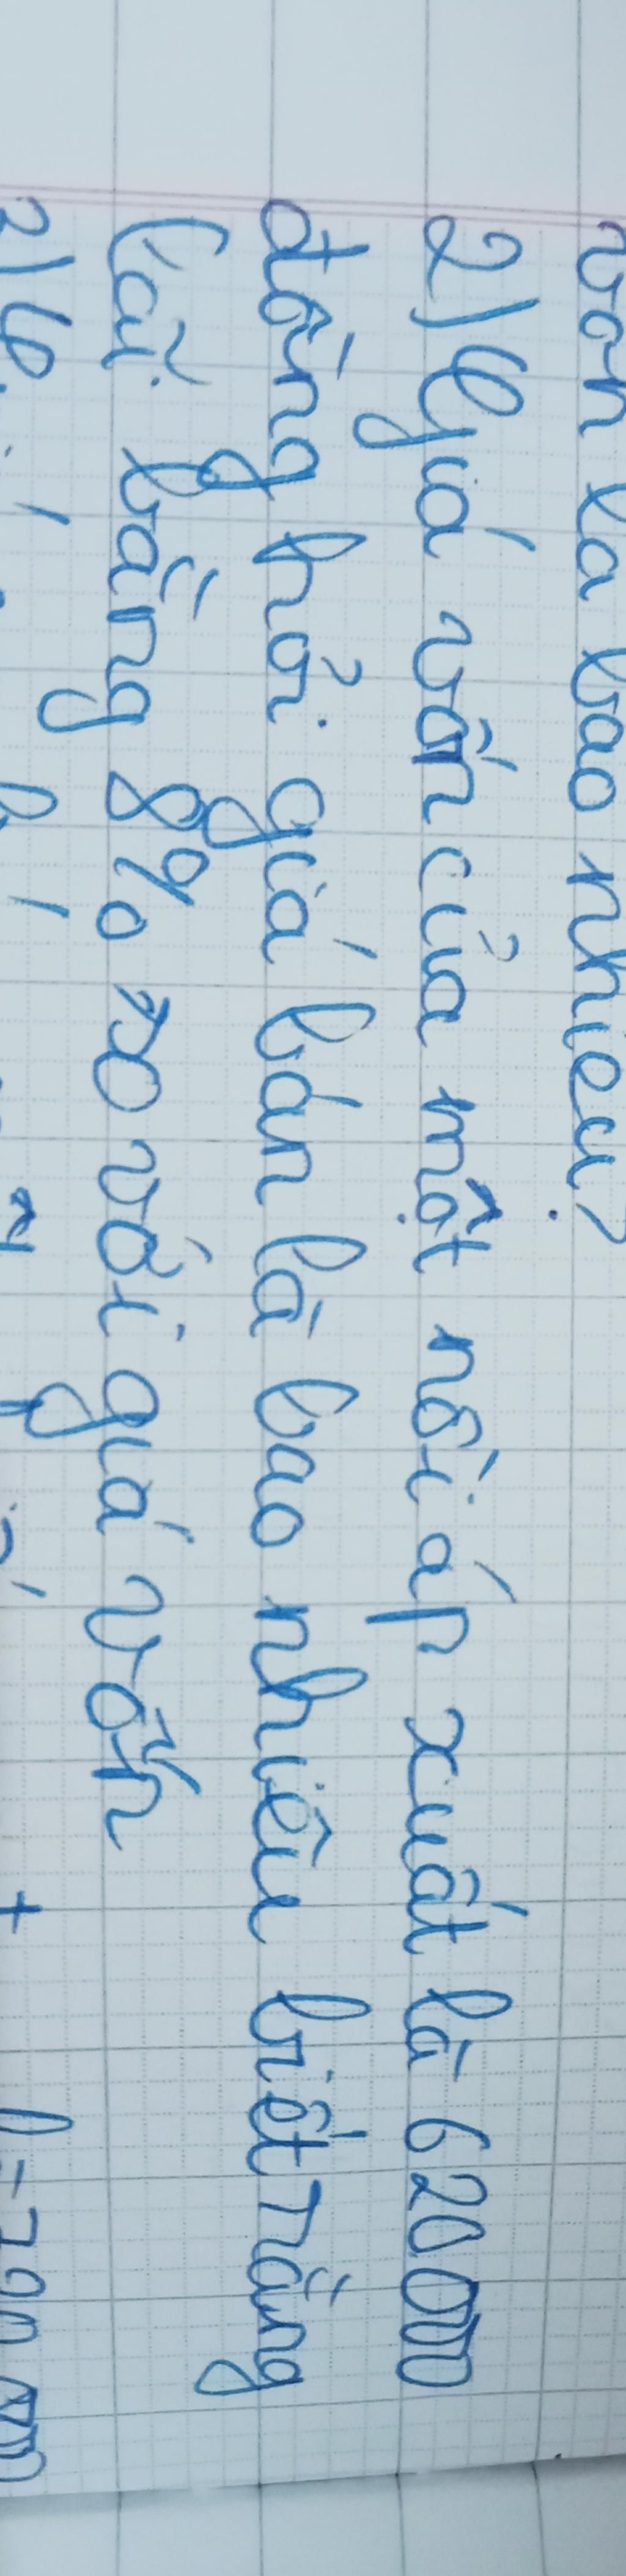 vốn là bao nhiêu?
2) Giá vốn của một nồi áp xuất là 620000
đồng hỏi giá bán là bao nhiêu biết rằng
lãi bằng 8% so với giá vốn